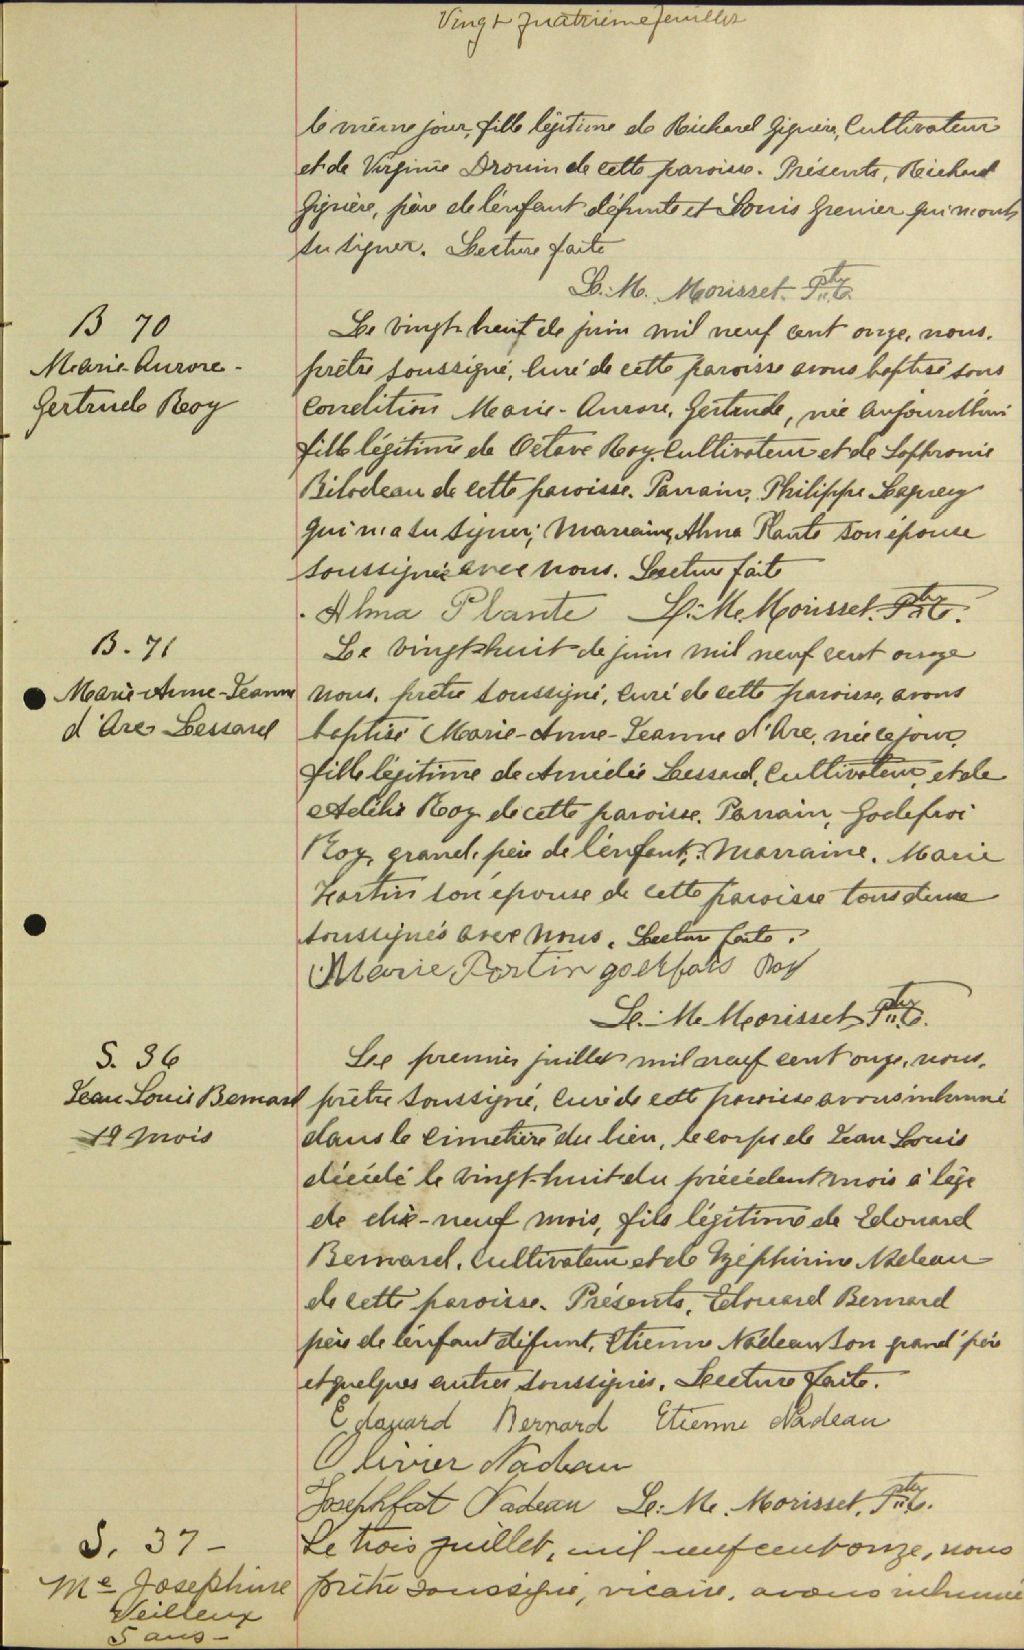 Vingt quatrième feuillet
le même jour, fille légitime de Richard Giguère, Cultivateur
et de Virginie Drouin de cette paroisse. Présents, Richard
Giguère, père de l'enfant défunte et Louis Grenier qui n'ont
su signer. Lecture faite
L. M. Morisset. Ptre
B 70
Marie-Aurore-
Gertrude Roy
Le vingt-huit de juin mil neuf cent onze, nous,
prêtre soussigné, curé de cette paroisse avons baptisé sous
condition Marie-Aurore, Gertrude, née aujourd'hui
fille légitime de Octave Roy, Cultivateur et de Sophronie
Bilodeau de cette paroisse. Parrain, Philippe
qui n'a su signer; Marraine, Alma Plante son épouse
soussignée avec nous. Lecture faite
Alma Plante L. M. Morisset. Ptre
B. 71
Marie-Anne-Jeanne
d'Arc Lessard
Le vingt-huit de juin mil neuf cent onze
nous, prêtre soussigné, curé de cette paroisse, avons
baptisé Marie-Anne-Jeanne d'Arc, née ce jour,
fille légitime de Amédée Lessard, Cultivateur, et de
Adélie Roy de cette paroisse. Parrain, Godefroi
Roy, grand-père de l'enfant; Marraine, Marie
son épouse de cette paroisse tous deux
soussignés avec nous. Lecture faite.
Marie Roy
L. M. Morisset, Ptre
S. 36
Jean Louis Bernard
19 mois
Le premier juillet mil neuf cent onze, nous,
prêtre soussigné, curé de cette paroisse avons inhumé
dans le cimetière du lieu, le corps de Jean Louis
décédé le vingt-huit du précédent mois à l'âge
de dix-neuf mois, fils légitime de Edouard
Bernard, cultivateur et de Zéphirine Nadeau
de cette paroisse. Présents, Edouard Bernard
père de l'enfant défunt, Etienne Nadeau son grand'père
et quelques autres soussignés. Lecture faite.
Edouard Bernard Etienne Nadeau
Olivier Nadeau
Nadeau L. M. Morisset, Ptre
S. 37 -
Me Josephine
Veilleux
5 ans -
Le trois juillet, mil neuf cent onze, nous
prêtre soussigné, vicaire, avons inhumé